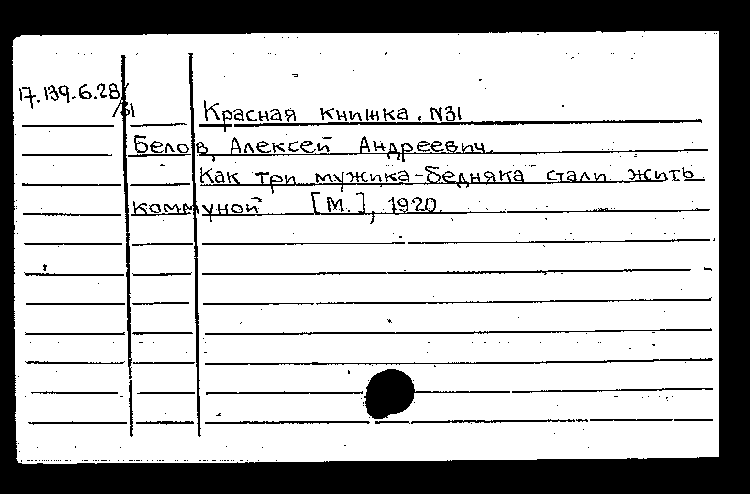 17.139.6.28/31
Красная книжка. N31
Белов, Алексей Андреевич.
Как три мужика-бедняка стали жить
коммуной [М.], 1920.